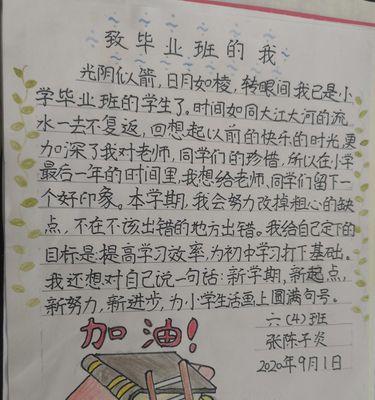 致毕业班的我
光阴似箭,日月如棱,转眼间我已是小
学毕业班的学生了。时间如同大江大河的流
水一去不复返,回想起以前的快乐的时光,更
加深了我对老师,同学们的珍惜,所以在小学
最后一年的时间里,我想给老师,同学们留下一
个好印象。本学期,我会努力改掉粗心的缺
点,不在不该出错的地方出错。我给自己定下的
目标是:提高学习效率,为初中学习打下基础。
我还想对自己说一句话:新学期,新起点,
新努力,新进步,为小学生活画上圆满句号。
六(4)班
张陈子炎
2020年9月1日
加油!